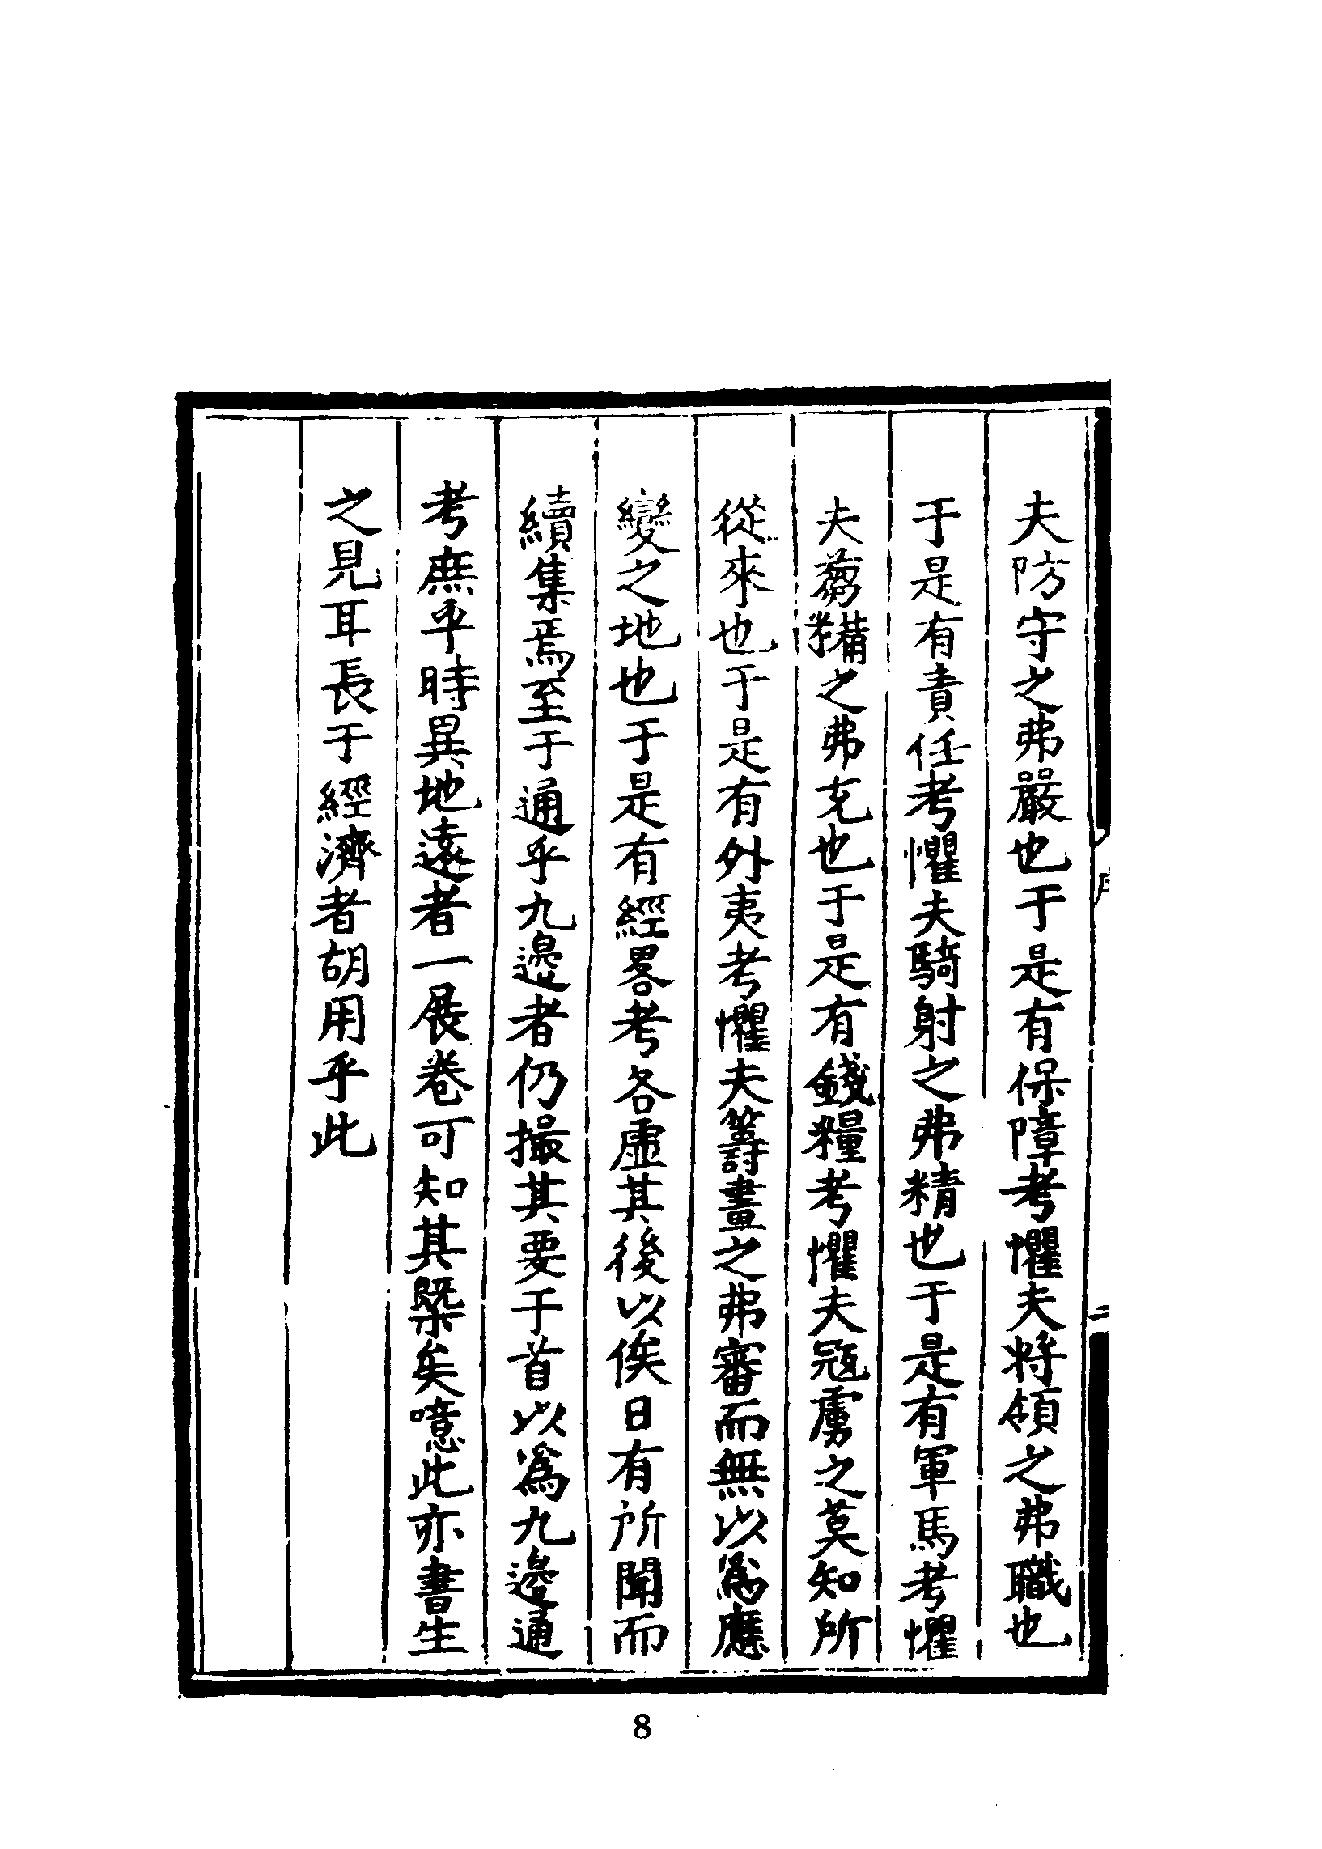 夫防守之弗嚴也于是有保障考懼夫將領之弗職也
于是有責任考懼夫騎射之弗精也于是有軍馬考懼
夫芻糒之弗充也于是有錢糧考懼夫寇虜之莫知所
從來也于是有外夷考懼夫籌畫之弗審而無以爲應
變之地也于是有經畧考各虛其後以俟日有所聞而
續集焉至于通乎九邊者仍撮其要于首以爲九邊通
考庶乎時異地遠者一展卷可知其槩矣噫此亦書生
之見耳長于經濟者胡用乎此
二
8